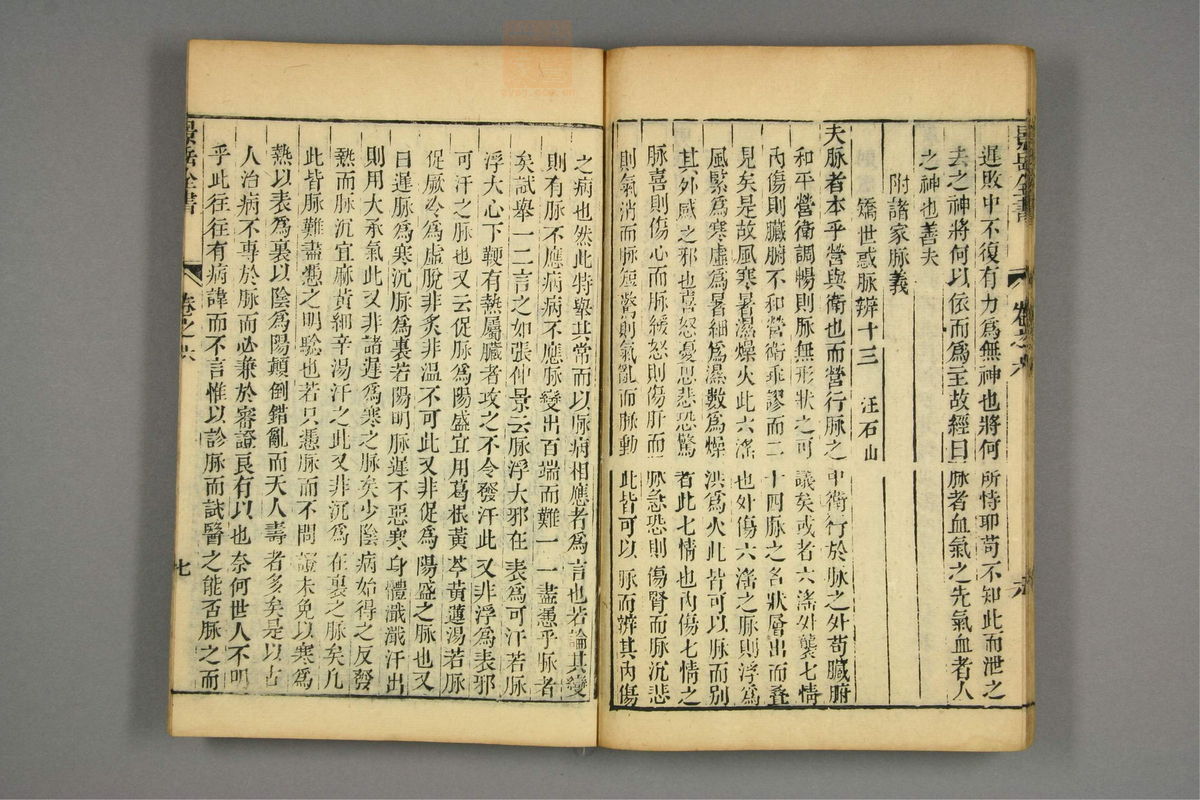 遲敗中不復有力爲無神也將何所恃耶苟不知此而泄之
去之神將何以依而爲主故經曰脉者血氣之先氣血者人
之神也善夫
附諸家脉義
矯世惑脉辨十三 汪石山
夫脉者本乎營與衛也而營行脉之中衛行於脉之外苟臟腑
和平營衛調暢則脉無形狀之可議矣或者六淫外襲七情
內傷則臟腑不和營衛乖謬而二十四脉之名狀層出而疊
見矣是故風寒暑濕燥火此六淫也外傷六淫之脉則浮爲
風緊爲寒虛爲暑細爲濕數爲燥洪爲火此皆可以脉而別
其外感之邪也喜怒憂思悲恐驚者此七情也內傷七情之
脉喜則傷心而脉緩怒則傷肝而脉急恐則傷腎而脉沉悲
則氣消而脉短驚則氣亂而脉動此皆可以脉而辨其內傷
景岳全書
卷之六
六
之病也然此特舉其常而以脉病相應者爲言也若論其變
則有脉不應病病不應脉變出百端而難一一盡憑乎脉者
矣試舉一二言之如張仲景云脉浮大邪在表爲可汗若脉
浮大心下鞕有熱屬臟者攻之不令發汗此又非浮爲表邪
可汗之脉也又云促脉爲陽盛宜用葛根黃芩黃連湯若脉
促厥冷爲虛脫非炙非温不可此又非促爲陽盛之脉也又
曰遲脉爲寒沉脉爲裏若陽明脉遲不惡寒身體濈濈汗出
則用大承氣此又非諸遲爲寒之脉矣少陰病始得之反發
熱而脉沉宜麻黃細辛湯汗之此又非沉爲在裏之脉矣凡
此皆脉難盡憑之明驗也若只憑脉而不問證未免以寒爲
熱以表爲裏以陰爲陽顛倒錯亂而夭人壽者多矣是以古
人治病不專於脉而必兼於審證良有以也奈何世人不明
乎此往往有病諱而不言惟以診脉而試醫之能否脉之而
景岳全書
卷之六
七